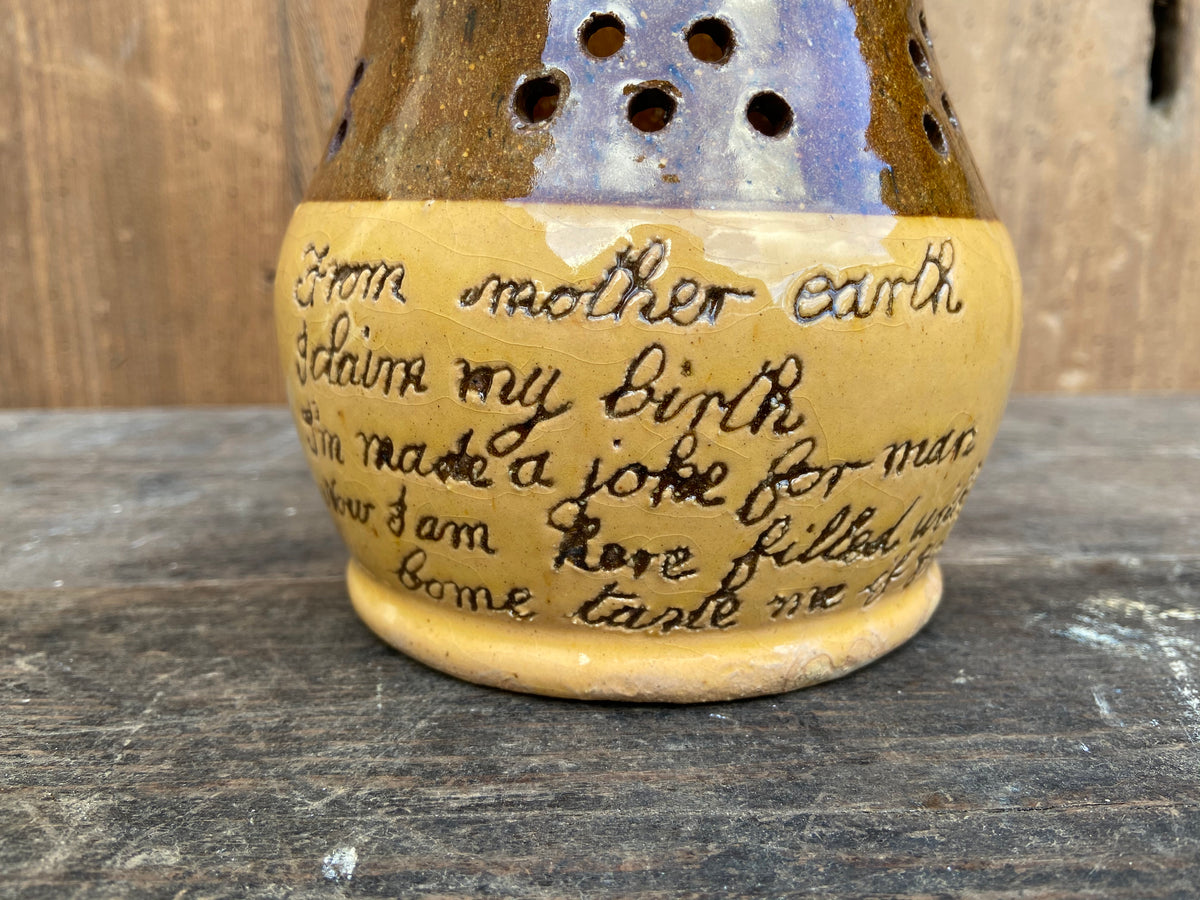 From mother earth
I claim my birth
I'm made a joke for man
Now I am here filled with
Come taste me if